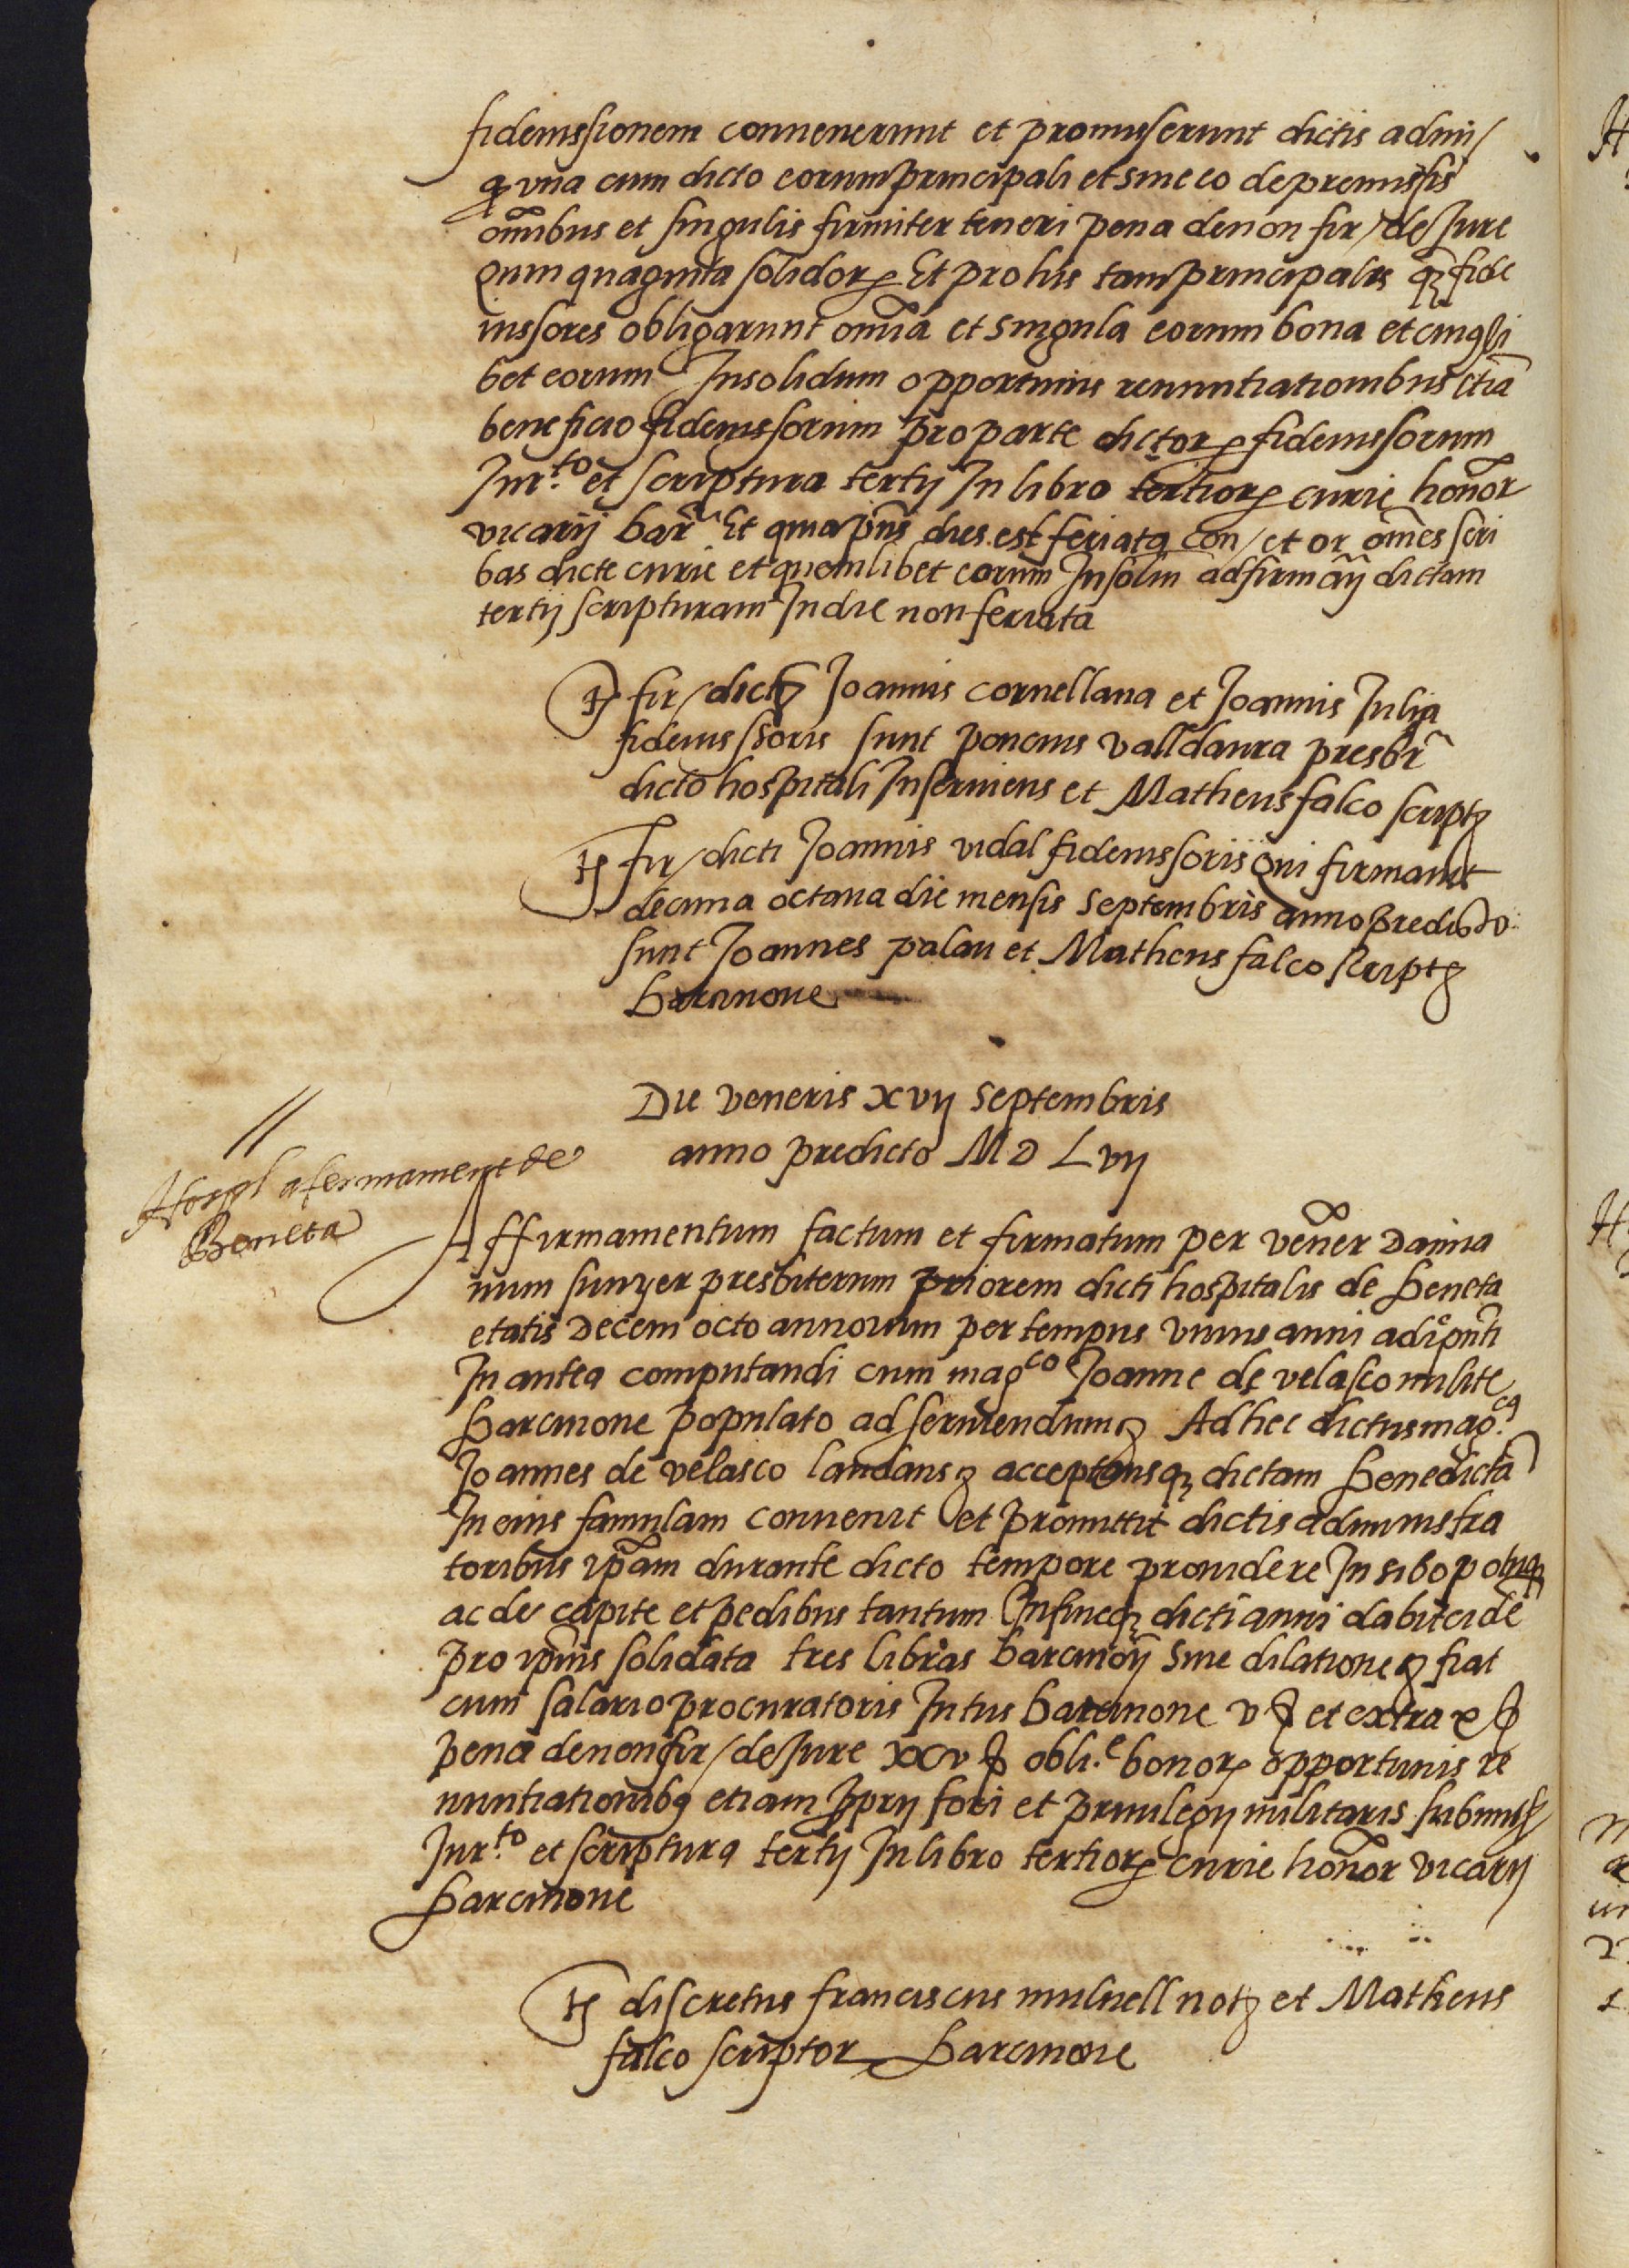 fideiussionem convenerunt et promiserunt dictis admi/
q̃ vna cum dicto eorum principali et sine eo de premissis
om̃ibus et singulis firmiter teneri pena de non fir/ de Jure
Quinquaginta solidoꝝ Et pro his tam principalis qꝫ fide
iussores obligarunt om̃ia et singula eorum bona et cuiusli
bet eorum Insolidum opportunis renuntiationibus etiã
beneficio fideiussorum pro parte dictorꝝ fideiussorum
Jur.to et scriptura tertij In libro tertiorꝝ curie honor̃
vicarij bar̃ Et quia p̃ns dies est feriata con/ et or om̃es scri
bas dicte curie et quemlibet eorum Insolũ ad firmãdij dictam
tertij scripturam In die non feriata
Tꝭ fir/ dictꝫ Joannis cornellana et Joannis Julia
fideiussoris sunt poncius valldaura presbr̃
dicto hospitali Inserviens et Matheus falco scriptꝫ
Tꝭ fir/ dicti Joannis vidal fideiussoris Qui firmavit
decima octava die mensis Septembris anno predicto
sunt Joannes palau et Matheus falco scriptꝫ
barcinone
Die veneris xvij Septembris
anno predicto M D L vij
//
Hospl afermament de
Boneta
Affirmamentum factum et firmatum per vener̃ Damia
num sunyer presbiterum priorem dicti hospitalis de beneta
etatis Decem octo annorum per tempus vnius anni ad p̃nti
In antea computandi cum mag.co Joanne de velasco milite
barcinone populato ad serviendumꝫ Ad hec dictus mag.
Joannes de velasco laudansꝫ acceptansqꝫ dictam benedictã
In eius famulam convenit et promittit dictis administra
toribus ip̃am durante dicto tempore providere In sibo potuqꝫ
ac de capite et pedibus tantum In fineqꝫ dicti anni dabit eidẽ
pro ip̃ius solidata tres libras barcinoñ Sine dilationeꝫ fiat
cum salario procuratoris Intus barcinone v ß et extra x ß
pena de non fir/ de Jure xxv ß obli.e bonorꝝ opportunis re
nuntiationibꝯ etiam ꝓprij fori et privilegij militaris submisꝭ
Jur.to et scriptura tertij In libro tertiorꝝ curie honor̃ vicarij
barcinone
Tꝭ discretus franciscus mulnell notꝫ et Matheus
falco scriptor barcinone